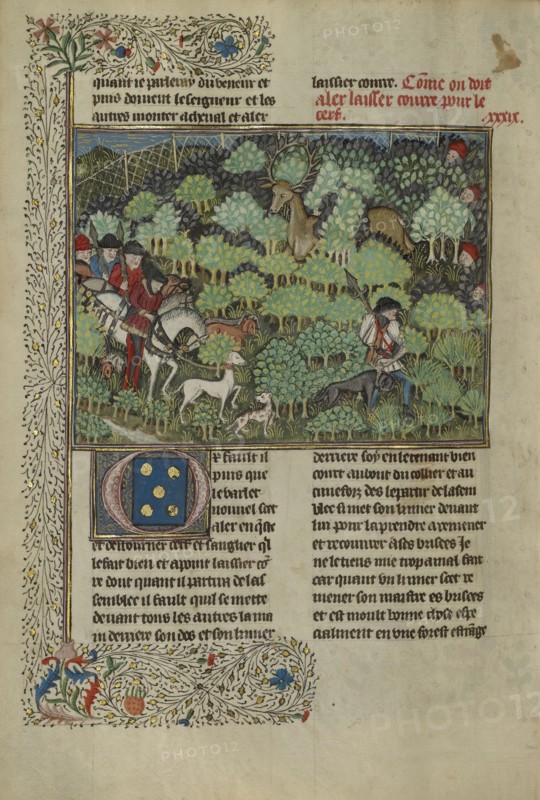 quant ie parleray du veneur et
puis doiuent le seigneur et les
autres monter a cheual et aler
laissier courre. Cōme on doit
aler laisser courre pour le
cerf. .xxxix.
Or fault il
puis que
le varlet
nouuel scet
aler en q̄ste
et destourner cerf et sanglier q̄l
le fait bien et apoint laissier
re dont quant il partira de las
semblee il fault quil se mette
deuant tous les autres la ma
in derriere son dos et son limier
derriere soy en le tenant bien
court au bout du collier et au
des le partir de lasem
blee si met son limier deuant
lui pour la prendre a remener
et recouurer a ses brisees Je
ne le tiens mie trop a mal fait
car quant vn limier scet re
mener son maistre es brisees
et est moult bonne chose espe
cialment en vne forest estrāge
PHOTO12
PHOTO12
PHOTO12